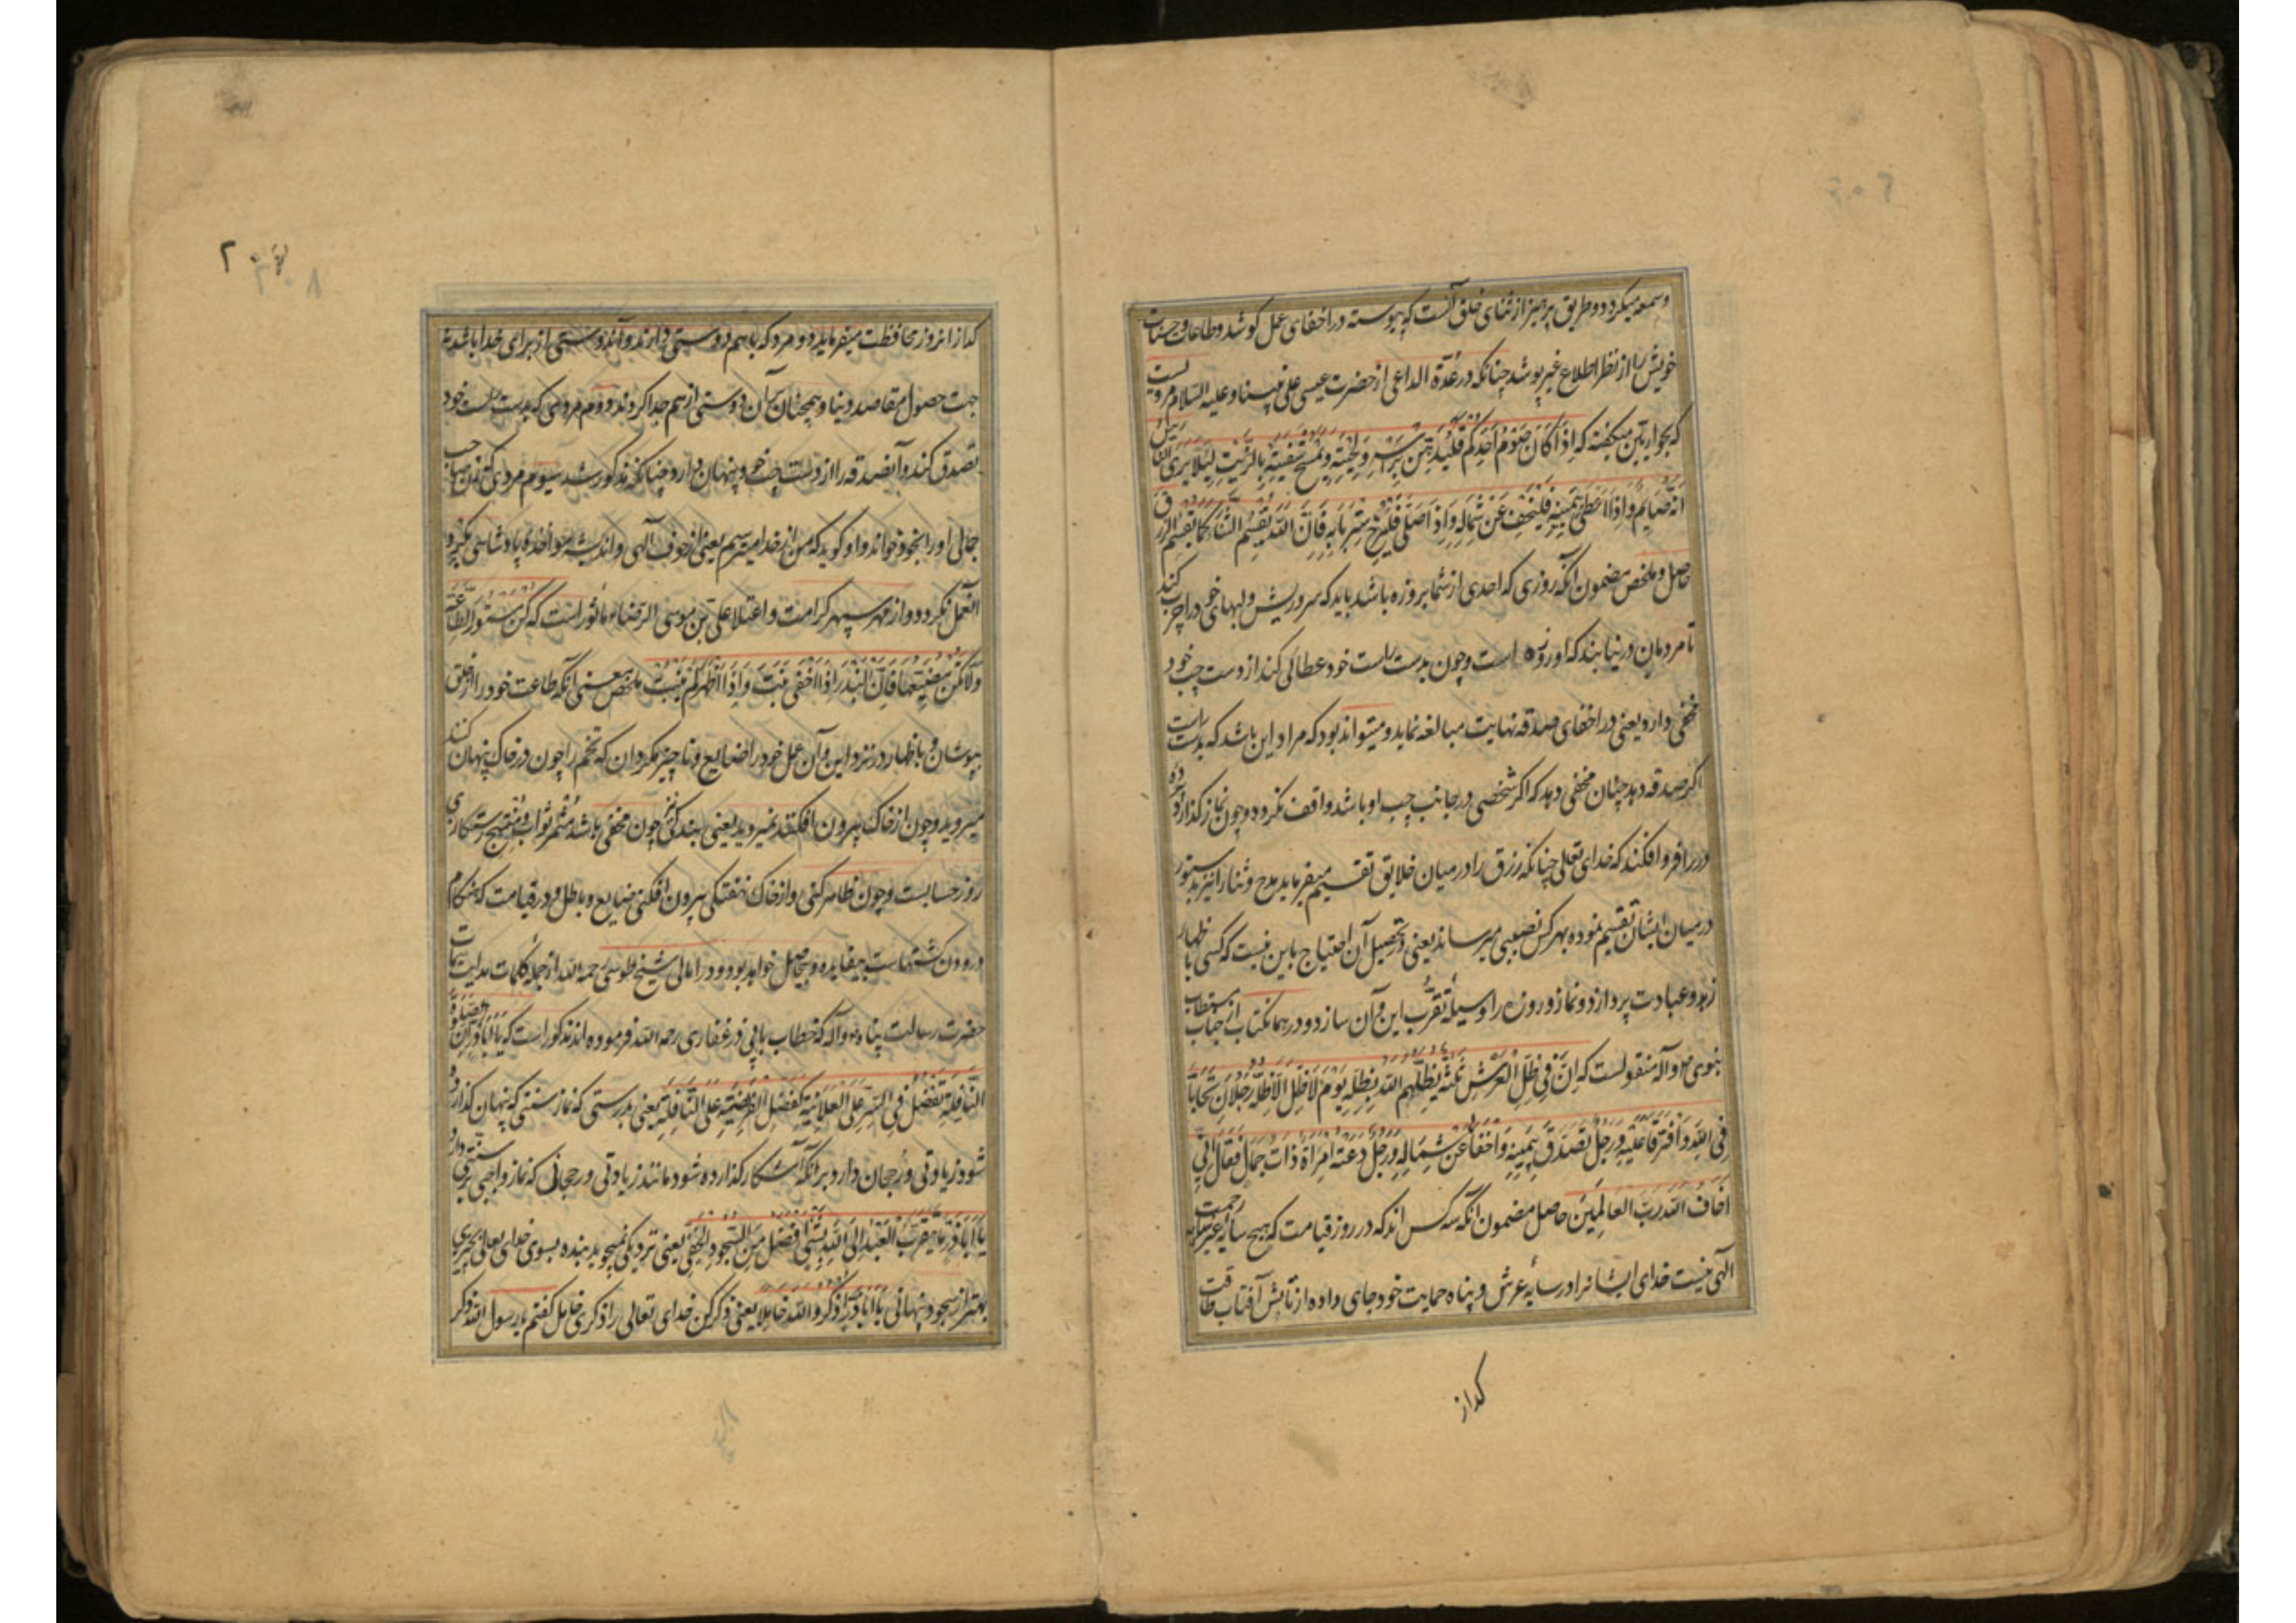 وسمعه میکردد و طریق پرهیز از ثنای خلق آنست که پیوسته در اخفای عمل کوشد و طاعات و حسنات
خویش را از نظر اطلاع غیر پوشد چنانکه در عدّة الداعی از حضرت عیسی علی نبینا و علیه السلام مرویست
که بحواریین میکفته که اِذَا کَانَ صَوْمُ اَحَدِکُمْ فَلْیُدَهِّنْ رَاْسَهُ وَ لِحْیَتَهُ وَ یَمْسَحْ شَفَتَیْهِ بِالزَّیْتِ لِئَلَّا یَرَی النَّاسُ
اَنَّهُ صَایِمٌ وَ اِذَا اَعْطَی بِیَمِینِهِ فَلْیُخْفِ عَنْ شِمَالِهِ وَ اِذَا صَلَّی فَلْیُرْخِ سِتْرَ بَابِهِ فَاِنَّ اللهَ یَقْسِمُ الثَّنَاءَ کَمَا یَقْسِمُ الرِّزْقَ
حاصل و ملخص مضمون آنکه روزی که احدی از شما بروزه باشد باید که سر و ریش و لبهای خود را چرب کند
تا مردمان در نیابند که او روزه است و چون بدست راست خود عطائی کند از دست چپ خود
مخفی دارد یعنی در اخفای صدقه نهایت مبالغه نماید و میتواند بود که مراد این باشد که بدست راست
اکر صدقه دهد چنان مخفی دهد که اکر شخصی در جانب چپ او باشد واقف نکردد و چون نماز کذارد پرده
در را فرو افکند که خدای تعالی چنانکه رزق را در میان خلایق تقسیم میفرماید مدح و ثنا را نیز بدستور
در میان ایشان تقسیم نموده بهر کس نصیبی میرساند یعنی در تحصیل آن احتیاج باین نیست که کسی با ظهار
زهد و عبادت پردازد و نماز و روزه را وسیلهٔ تقرّب این و آن سازد و در همانکتاب از جناب مستطاب
نبوی ص و آله منقولست که اِنَّ فِی ظِلِّ الْعَرْشِ ثَلٰثَةً یُظِلُّهُمُ اللهُ بِظِلِّهِ یَوْمَ لَا ظِلَّ اِلَّا ظِلُّهُ رَجُلَانِ تَحَابَّا
فِی اللهِ وَ افْتَرَقَا عَلَیْهِ وَ رَجُلٌ تَصَدَّقَ بِیَمِینِهِ وَ اَخْفَا عَنْ شِمَالِهِ وَ رَجُلٌ دَعَتْهُ امْرَاَةٌ ذَاتُ جَمَالٍ فَقَالَ اِنِّی
اَخَافُ اللهَ رَبَّ الْعَالَمِینَ حاصل مضمون آنکه سه کس اند که در روز قیامت که هیچ سایهٔ غیر سایهٔ رحمت
آلهی نیست خدای ایشانرا در سایهٔ عرش و پناه حمایت خود جای داده از تابش آفتاب طاقت
کداز
کداز انروز محافظت میفرماید دو مرد که باهم دوستی دارند و آندوستی از برای خدا باشد نه
جهت حصول مقاصد دنیا و همچنان بر آن دوستی از هم جدا کردند دوم مردی که بدست راست خود
تصدق کند و آنصدقه را از دست چپ خود پنهان دارد چنانکه مذکور شد سیوم مردی که زن صاحب
جمالی او را بخود خواند و او کوید که من از خدا میترسم یعنی از خوف آلهی و اندیشه مواخذه پادشاهی
العمل نکردد و از مهر سپهر کرامت و اعتلا علی بن موسی الرضا ع ماثور است که
بپوشان و باظهار در نزد این و آن عمل خود را ضایع و ناچیز مکردان که تخم را چون در خاک پنهان کنند
میروید و چون از خاک بیرون افکنند نمیروید یعنی بندکی چون مخفی باشد مثمر ثواب و منتج رستکاری
روز حسابست و چون ظاهر کنی و از خاک نهفتکی بیرون افکنی ضایع و باطل و در قیامت که هنکام
درودن کشتهاست بیفایده و بیحاصل خواهد بود و در امالی شیخ طوسی رحمه الله از جمله کلمات هدایت سمات
حضرت رسالت پناه ص و آله که خطاب بابی ذر غفاری رحمه الله فرموده اند مذکور است که یَا اَبَاذَرٍّ اِنَّ الصَّلٰوةَ
النَّافِلَةَ تَفْضُلُ فِی السِّرِّ عَلَی الْعَلَانِیَةِ کَفَضْلِ الْفَرِیضَةِ عَلَی النَّافِلَةِ یعنی بدرستی که نماز سنتی که پنهان کذارده
شود زیادتی و رجحان دارد بر آنکه آشکار کذارده شود مانند زیادتی و رجحانی که نماز واجبی بر سنتی دارد
یَا اَبَاذَرٍّ مَا یَتَقَرَّبُ الْعَبْدُ اِلَی اللهِ بِشَیْءٍ اَفْضَلَ مِنَ السُّجُودِ الْخَفِیِّ یعنی نزدیکی نمیجوید بنده بسوی خدای تعالی بچیزی
بهتر از سجود پنهانی یَا اَبَاذَرٍّ اُذْکُرُوا اللهَ خَامِلًا یعنی ذکر کن خدای تعالی را ذکری خامل کفتم یا رسول الله ذکر